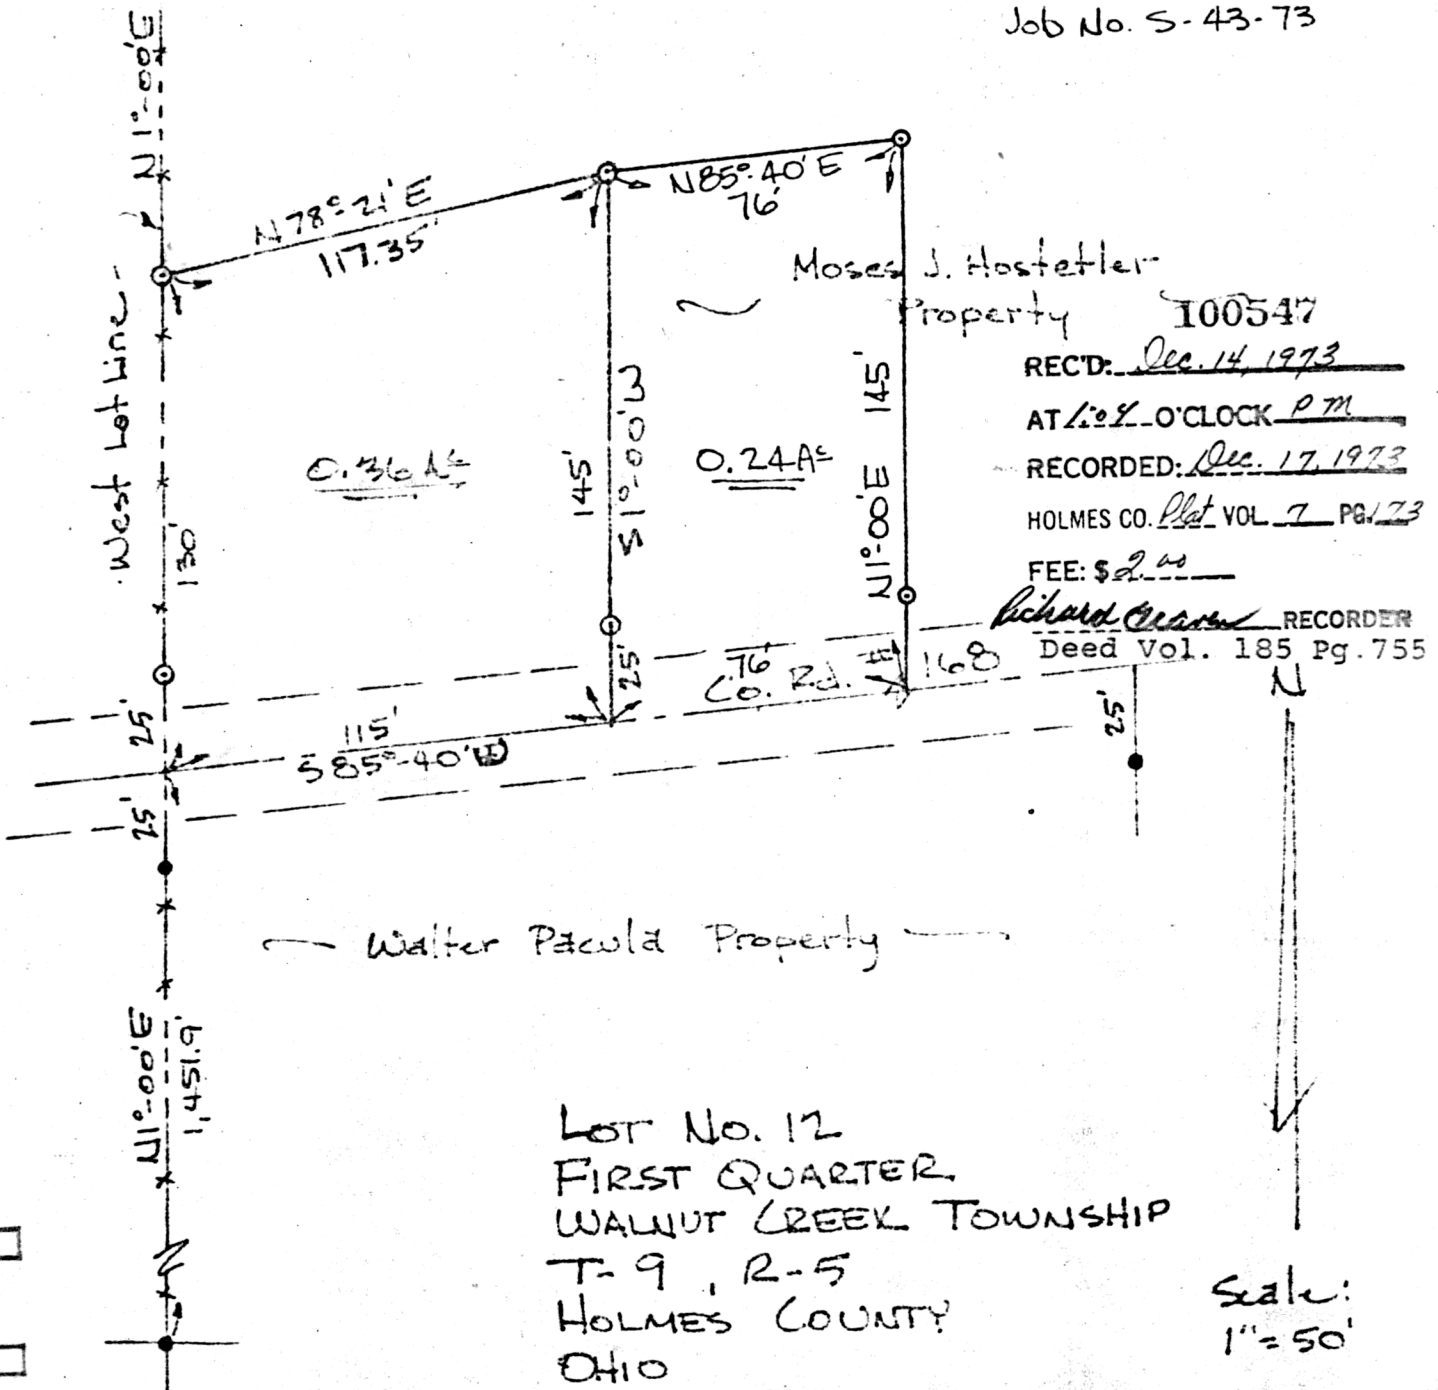 Job No. S-43-73
N 1°-00'E
N 78°-21' E
117.35'
N85°-40' E
76'
Moses J. Hostetler
Property
100547
REC'D: Dec. 14, 1973
AT O'CLOCK P M
RECORDED: Dec. 17, 1973
HOLMES CO. Plat VOL. 7 PG. 173
FEE: $ 2.00
Richard RECORDER
Deed Vol. 185 Pg. 755
West Lot Line
130'
0.36 Ac
145'
S 1°-00' W
0.24 Ac
N1°-00'E 145'
25'
25'
76'
Co. Rd. 168
115'
S 85°-40' W
25'
25'
N
Walter Pacula Property
N1°-00'E
1,451.9'
LOT No. 12
FIRST QUARTER
WALNUT CREEK TOWNSHIP
T-9, R-5
HOLMES COUNTY
OHIO
Scale:
1"=50'